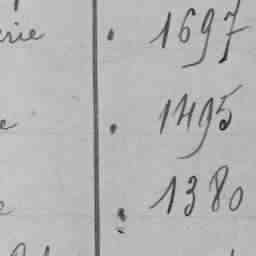 rie . 1697
e . 1495
e : 1380